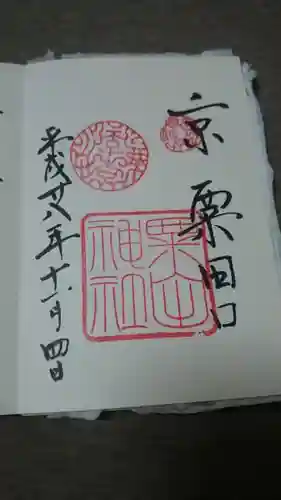 京 粟田口
粟田神社
平成廿八年十一月四日